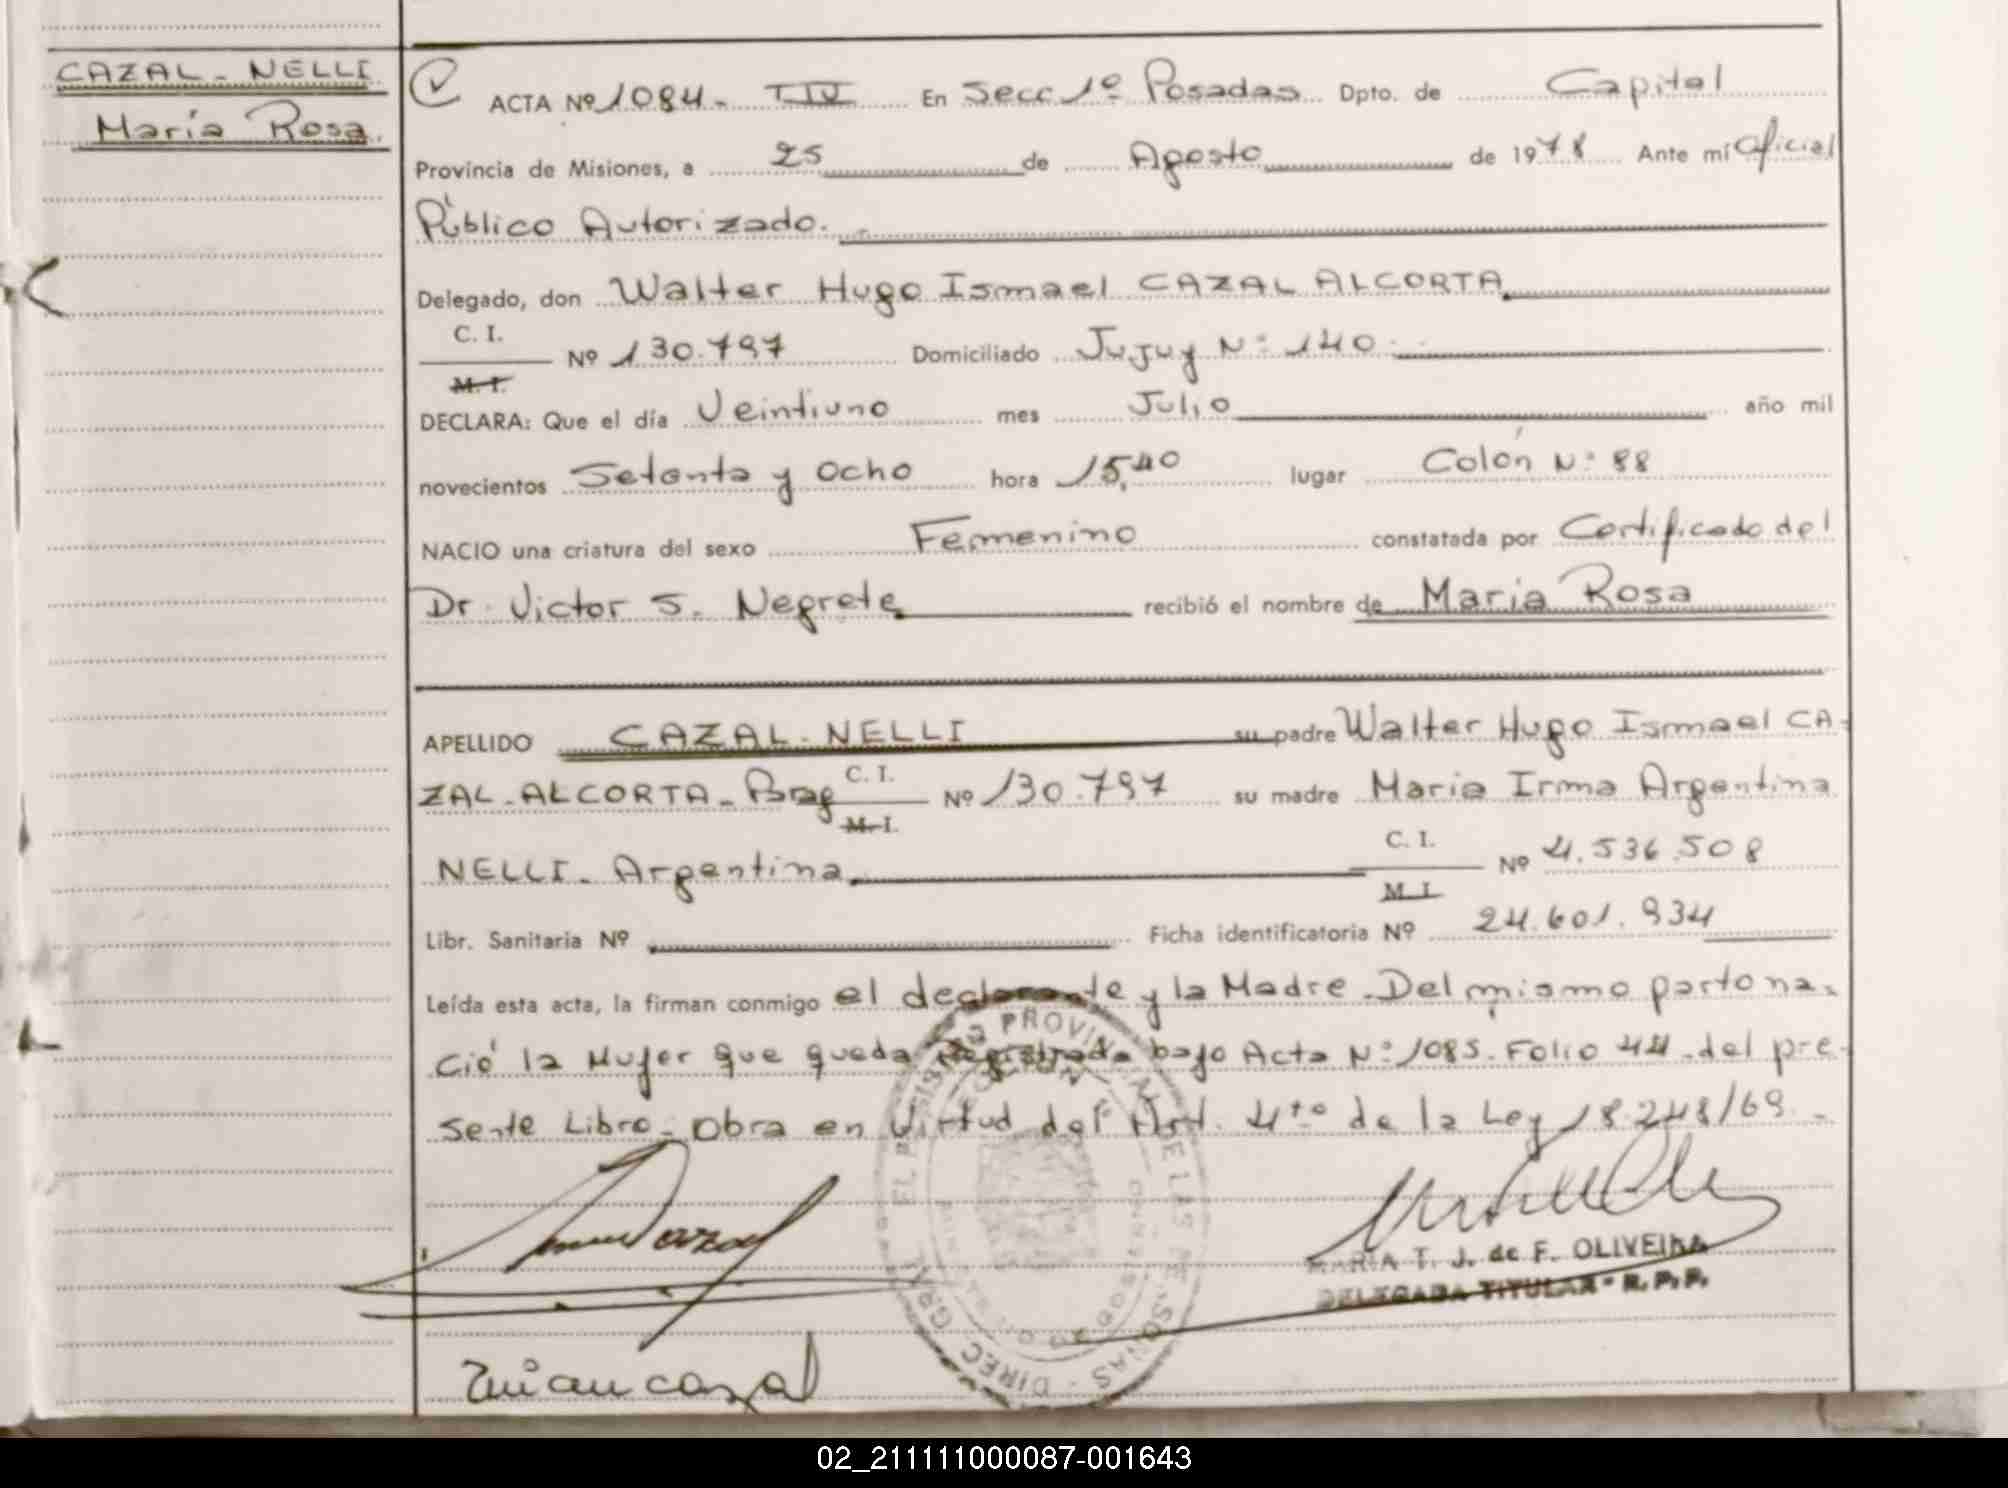 CAZAL - NELLI
María Rosa.
ACTA Nº 1084 - TIV En Secc 1º Posadas Dpto. de Capital
Provincia de Misiones, a 25 de Agosto de 1978 Ante mí Oficial
Público Autorizado.
Delegado, don Walter Hugo Ismael CAZAL ALCORTA
C. I.
M. I. Nº 130.797 Domiciliado Jujuy Nº 140
DECLARA: Que el día Veintiuno mes Julio año mil
novecientos Setenta y Ocho hora 15,40 lugar Colón Nº 88
NACIO una criatura del sexo Femenino constatada por Certificado del
Dr. Victor S. Negrete recibió el nombre de María Rosa
APELLIDO CAZAL - NELLI su padre Walter Hugo Ismael CA-
ZAL - ALCORTA - Parag C. I. M. I. Nº 130.797 su madre María Irma Argentina
NELLI - Argentina C. I. M. I. Nº 4.536.508
Libr. Sanitaria Nº Ficha identificatoria Nº 24.601.934
Leída esta acta, la firman conmigo el declarante y la Madre - Del mismo parto na-
ció la Mujer que queda Registrada bajo Acta Nº 1085 - Folio 44 - del pre-
sente Libro - Obra en Virtud del Art. 4to de la Ley 18.248/69 -
MARIA T. J. de F. OLIVEIRA
DELEGADA TITULAR - R. P. P.
02_211111000087-001643